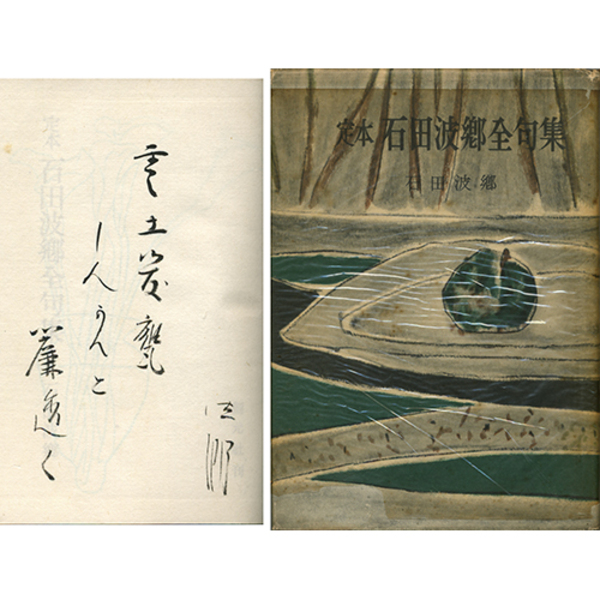 土 甕
しんかんと
簾透く
波郷
定本 石田波郷全句集
定本 石田波郷全句集
石田波郷